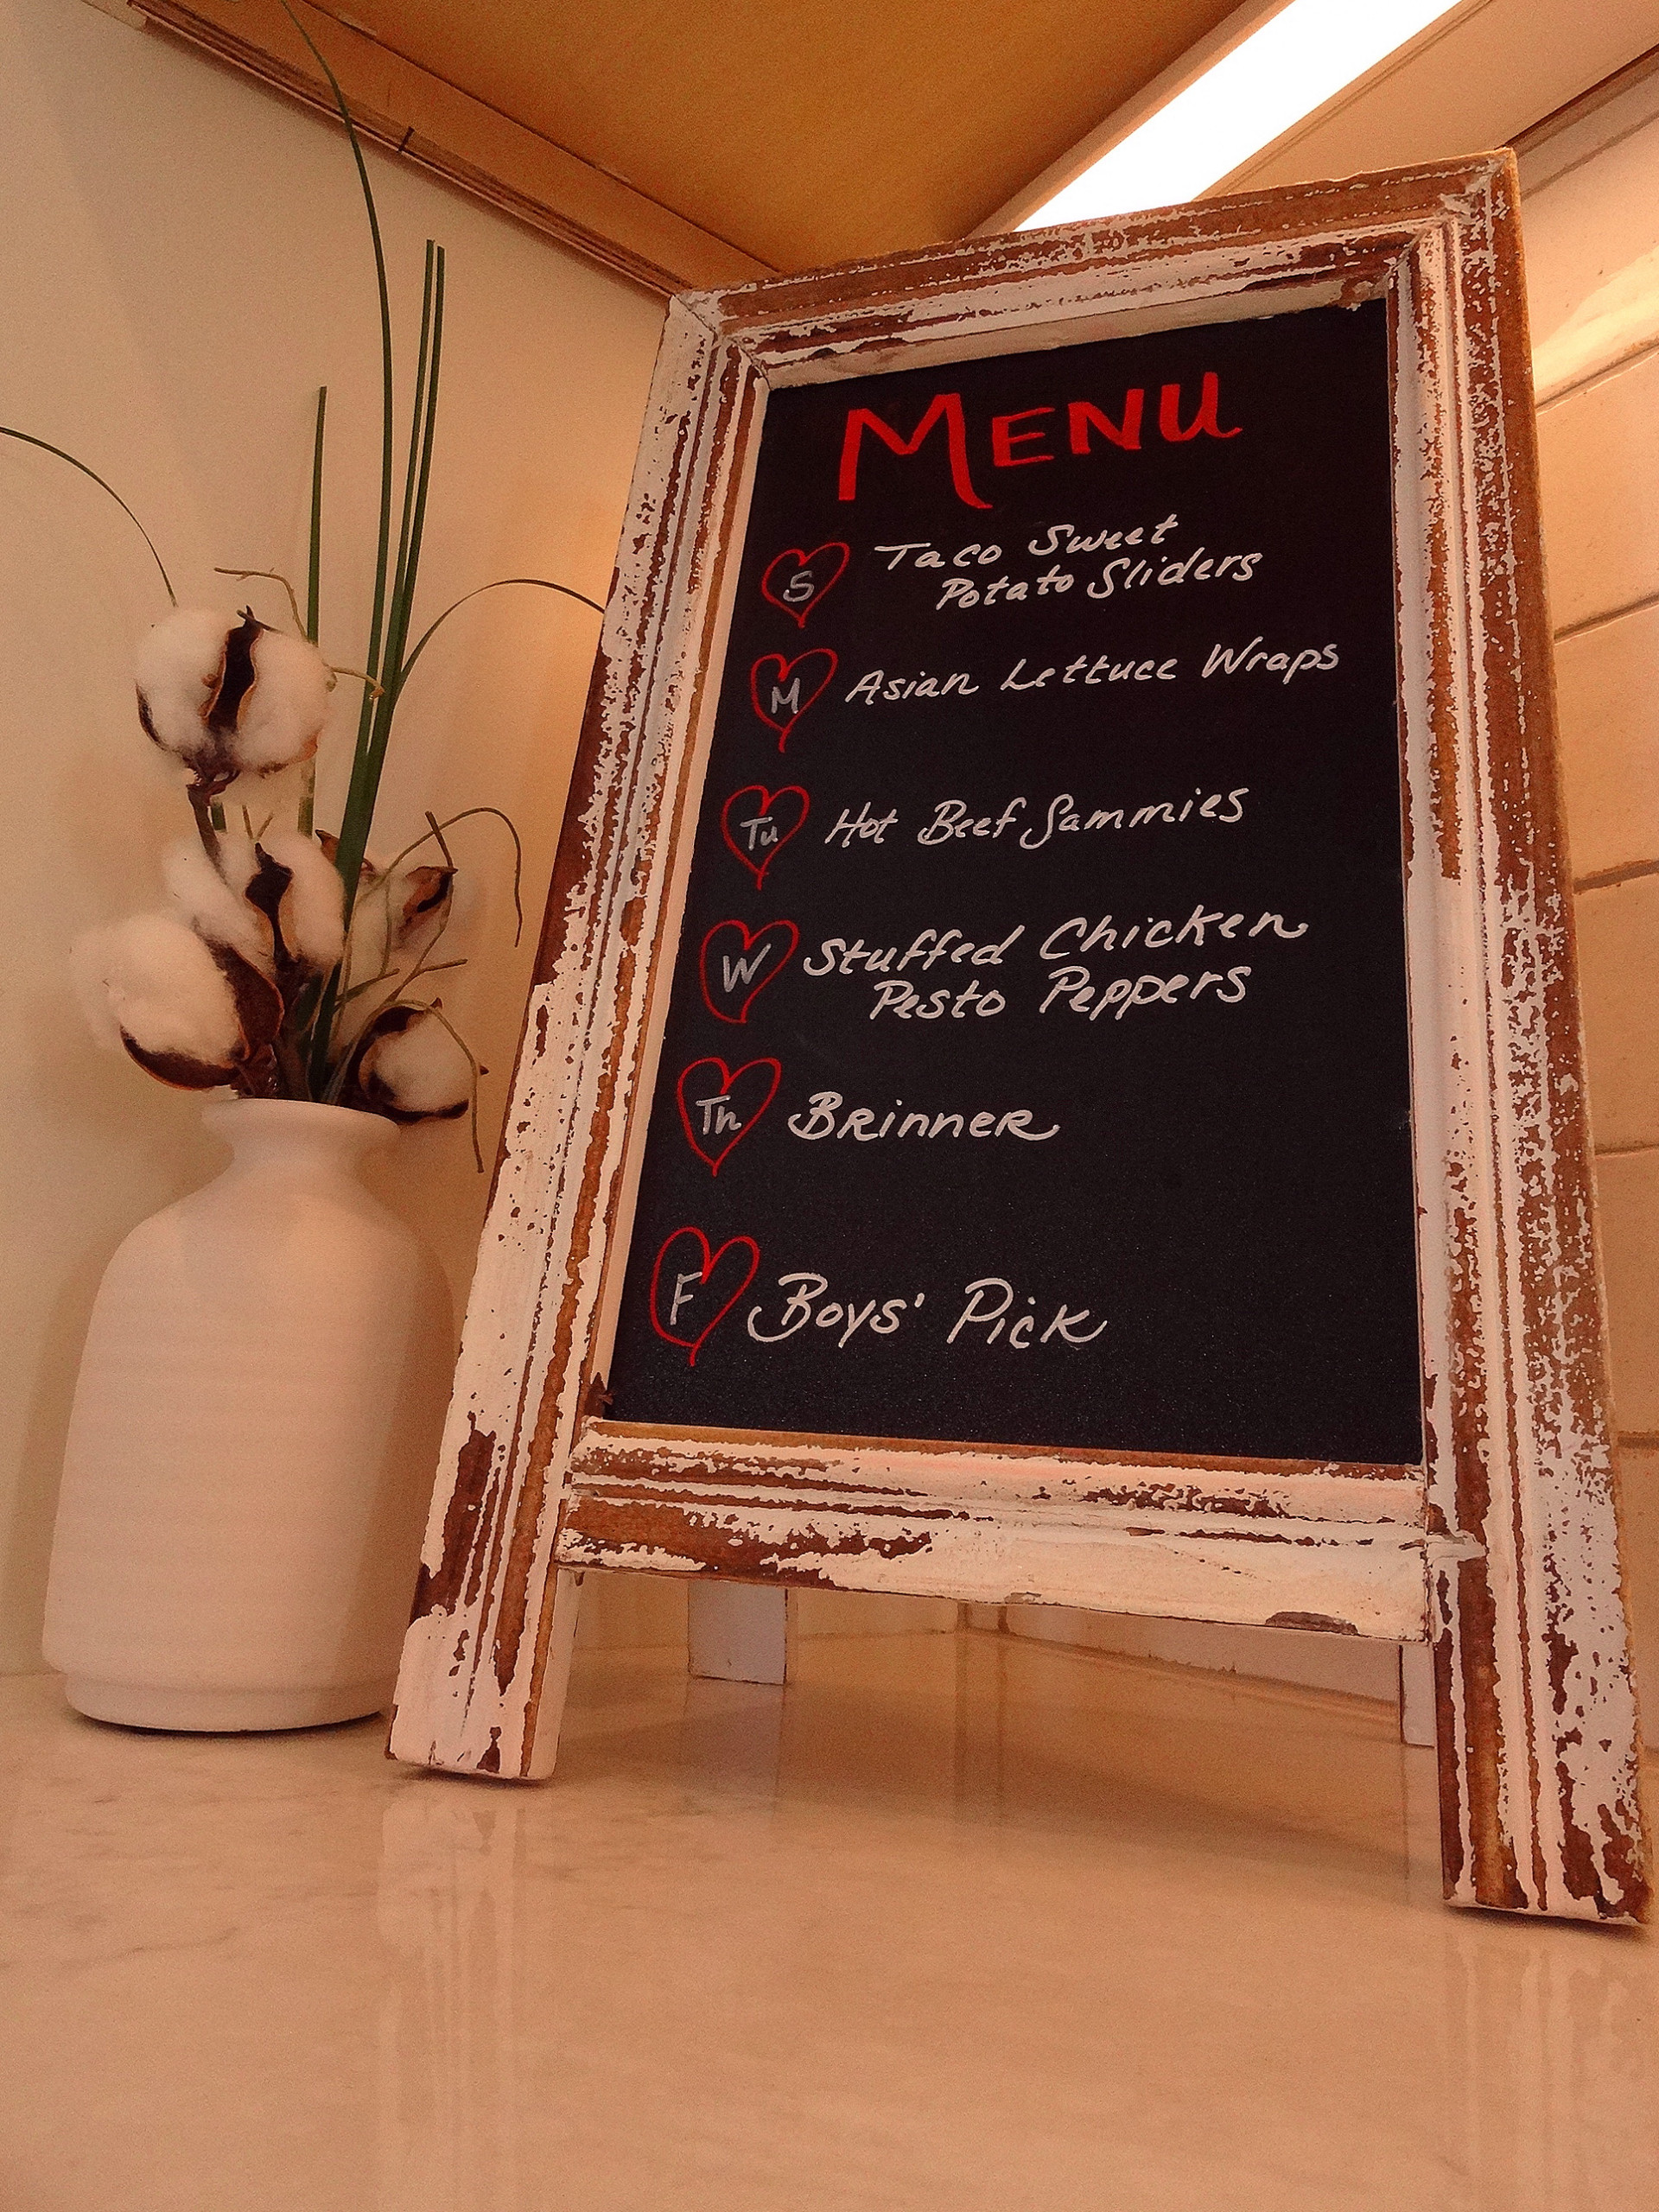 MENU
S Taco Sweet
Potato Sliders
M Asian Lettuce Wraps
Tu Hot Beef Sammies
W Stuffed Chicken
Pesto Peppers
Th Brinner
F Boys' Pick